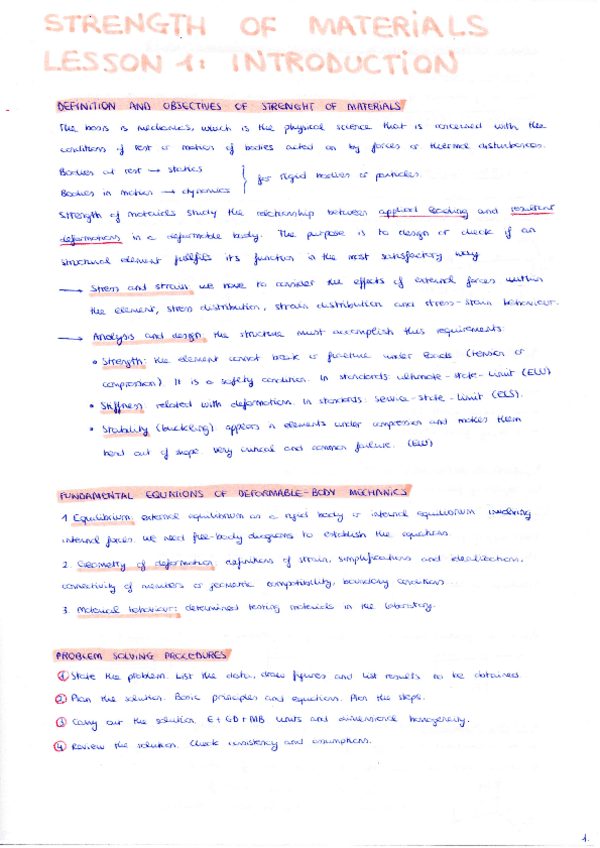 STRENGTH OF MATERIALS
LESSON 1: INTRODUCTION
DEFINITION AND OBJECTIVES OF STRENGHT OF MATERIALS
The basis is mechanics, which is the physical science that is concerned with the
conditions of rest or motion of bodies acted on by forces or thermal disturbances.
Bodies at rest → statics
for rigid bodies or particles.
Bodies in motion → dynamics
Strength of materials study the relationship between applied loading and resultant
deformations in a deformable body. The purpose is to design or check if an
structural element fulfills its function in the most satisfactory way
→ Stress and strain: we have to consider the effects of external forces within
the element, stress distribution, strain distribution and stress-strain behaviour.
→ Analysis and design, the structure must accomplish this requirements:
• Strength: the element cannot break or fracture under loads (tension or
compression). It is a safety condition. In standards: ultimate-state-limit (ELU)
• Stiffness: related with deformations. In standards: service-state-limit (ELS).
• Stability (buckling) appears in elements under compression and makes them
bend out of shape. Very critical and common failure. (ELU)
FUNDAMENTAL EQUATIONS OF DEFORMABLE-BODY MECHANICS
1. Equilibrium: external equilibrium as a rigid body or internal equilibrium involving
internal forces. We need free-body diagrams to establish the equations.
2. Geometry of deformation: definitions of strain, simplifications and idealizations,
connectivity of members or geometric compatibility, boundary conditions...
3. Material behaviour: determined testing materials in the laboratory.
PROBLEM SOLVING PROCEDURES
1 State the problem. List the data, draw figures and list results to be obtained.
2 Plan the solution. Basic principles and equations. Plan the steps.
3 Carry out the solution. E+GD+MB units and dimensional homogeneity.
4 Review the solution. Check consistency and assumptions.
1.